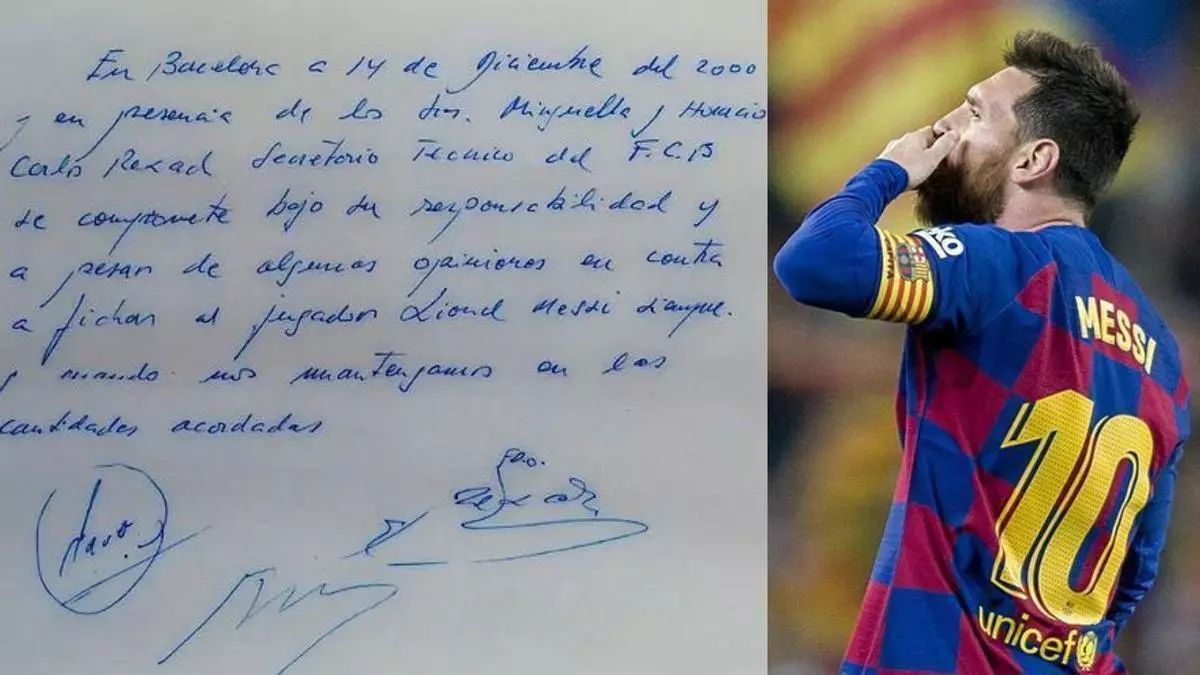 En Barcelona a 14 de Diciembre del 2000
y en presencia de los Srs. Minguella y Horacio
Carlos Rexach Secretario Tecnico del F.C.B
se compromete bajo su responsabilidad y
a pesar de algunas opiniones en contra
a fichar al jugador Lionel Messi siempre.
y cuando nos mantengamos en las
cantidades acordadas
Fdo.
MESSI
10
unicef
beko